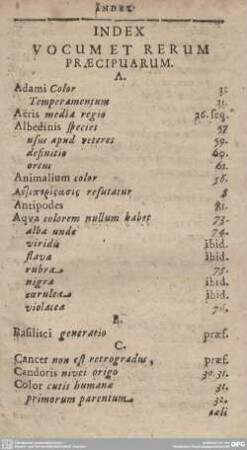 INDEX
INDEX
VOCUM ET RERUM
PRÆCIPUARUM.
A.
Adami Color 32
Temperamentum 31.
Aëris media regio 26. seq.
Albedinis species 57
usus apud veteres 59.
definitio 60.
ortus 62.
Animalium color 56.
refutatur 8
Antipodes 81.
Aqva colorem nullum habet 73.
alba unde 74.
viridis ibid.
flava ibid.
rubra 75.
nigra ibid.
cærulea ibid.
violacea 76.
B.
Basilisci generatio præf.
C.
Cancer non est retrogradus, præf.
Candoris nivei origo 30. 31.
Color cutis humanæ 32.
primorum parentum 32.
cæli